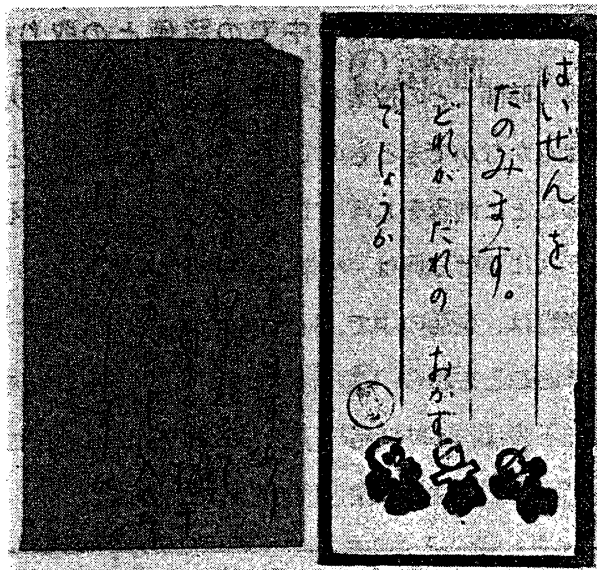 はいぜんを
たのみます。
どれが だれの おかず
でしょうか